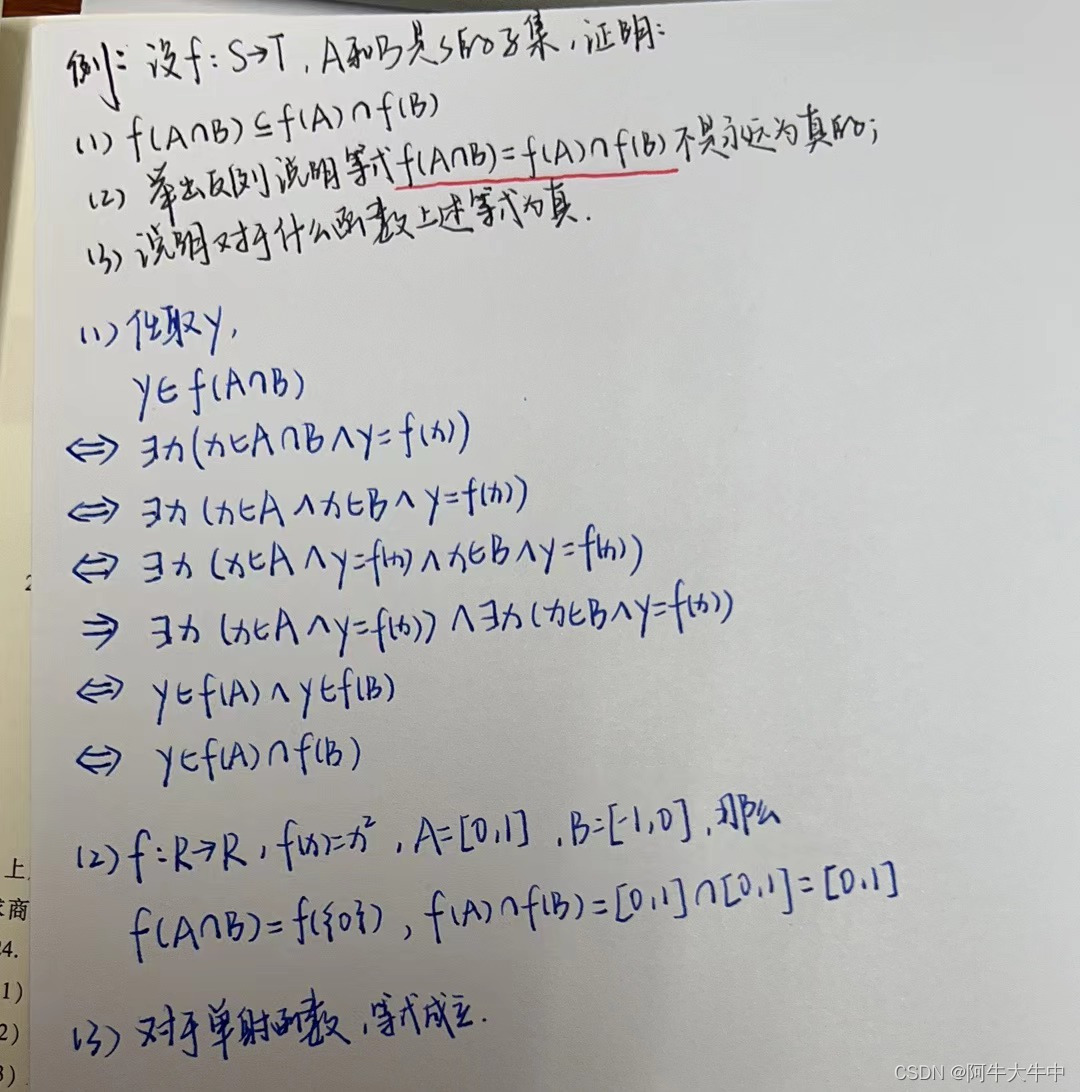 例: 设f: S→T, A和B是S的子集, 证明:
(1) f(A∩B)⊆f(A)∩f(B)
(2) 举出反例说明等式f(A∩B)=f(A)∩f(B)不是永远为真的;
(3) 说明对于什么函数上述等式为真.
(1) 任取y,
y∈f(A∩B)
⇔ ∃x(x∈A∩B∧y=f(x))
⇔ ∃x(x∈A∧x∈B∧y=f(x))
⇔ ∃x(x∈A∧y=f(x)∧x∈B∧y=f(x))
⇒ ∃x(x∈A∧y=f(x))∧∃x(x∈B∧y=f(x))
⇔ y∈f(A)∧y∈f(B)
⇔ y∈f(A)∩f(B)
(2) f:R→R, f(x)=x², A=[0,1], B=[-1,0], 那么
f(A∩B)=f({0}), f(A)∩f(B)=[0,1]∩[0,1]=[0,1]
(3) 对于单射函数, 等式成立.
上
商
4.
1)
2)
3)
CSDN @阿牛大牛中